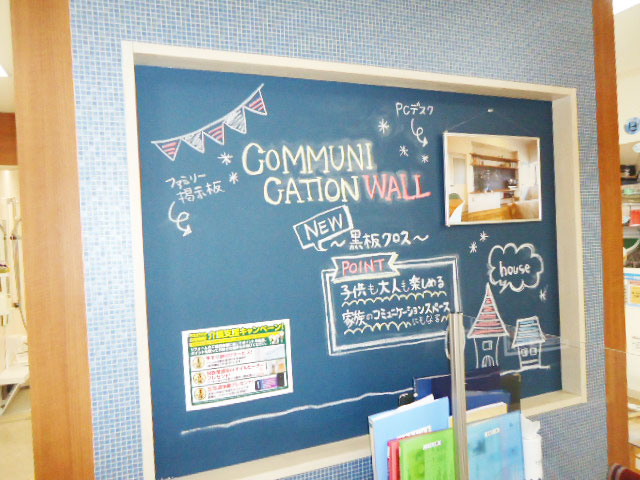 PCデスク
ファミリー
掲示板
COMMUNI
CATION WALL
NEW
～黒板クロス～
POINT
子供も大人も楽しめる
家族のコミュニケーションスペース
にもなる
house